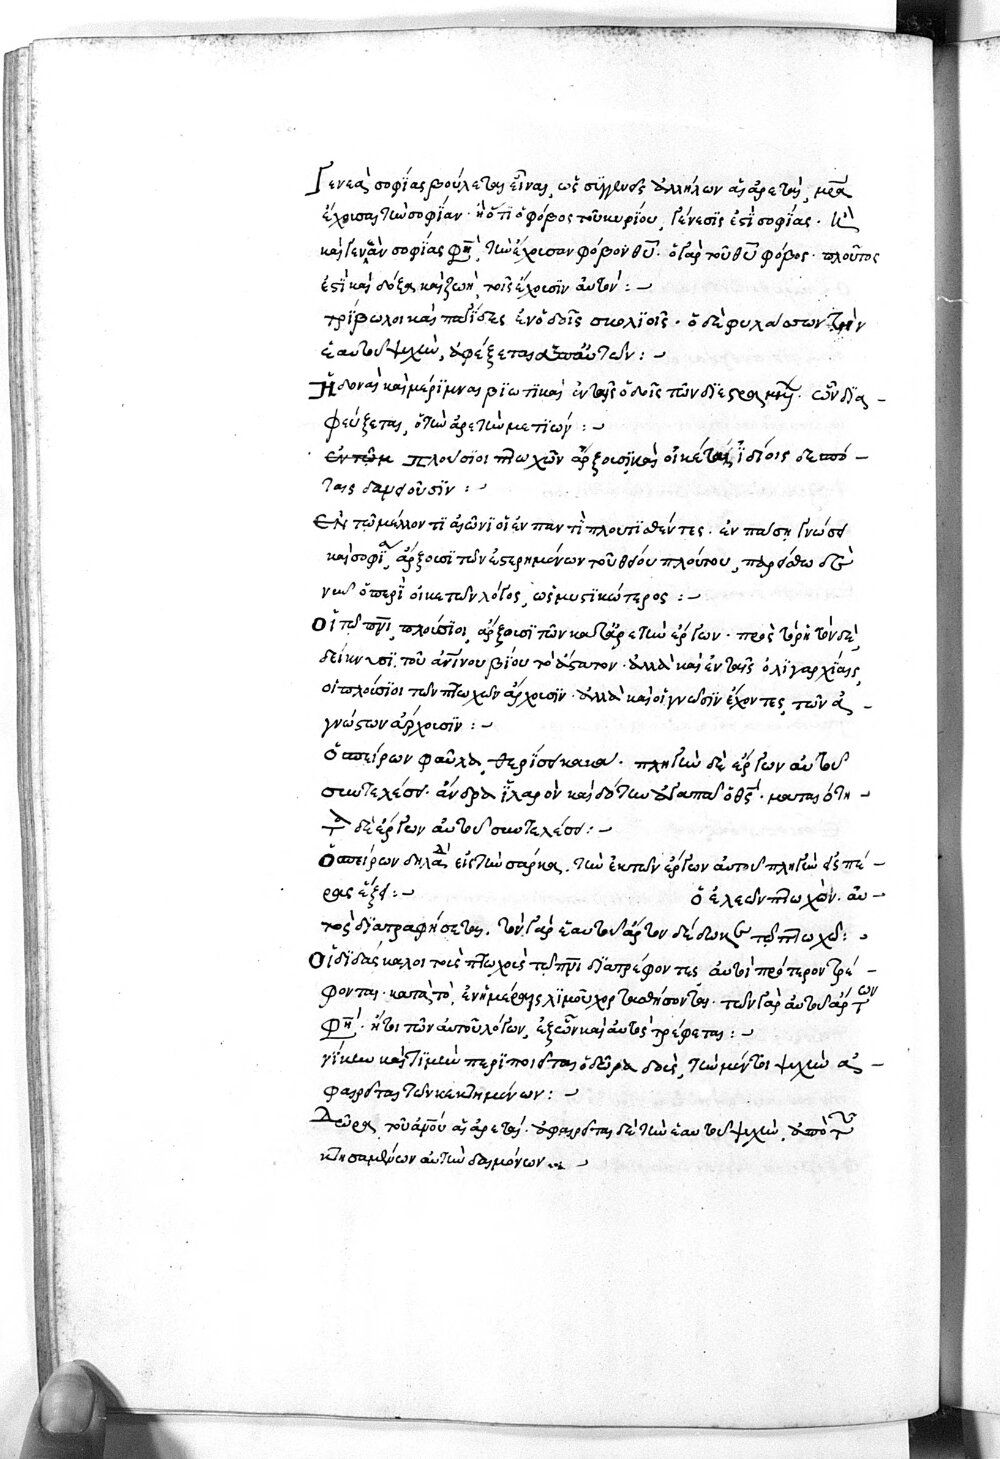 Γενεὰ σοφίας βούλεται εἶναι, ὡς συγγενεῖς ἀλλήλων αἱ ἀρεταὶ,
ἔχρισαι τὴν σοφίαν· ἢ ὅτι ὁ φόβος τοῦ κυρίου, γένεσίς ἐστι σοφίας·
καὶ γενεὰν σοφίας φησὶ, τὴν ἔχουσαν φόβον θῦ· ὁ γὰρ τοῦ θῦ φόβος· πλοῦτος
ἐστὶ καὶ δόξα καὶ ζωὴ τοῖς ἔχουσιν αὐτόν :
τρίβωλοι καὶ παγίδες ἐν ὁδοῖς σκολιοῖς· ὁ δὲ φυλάσσων τὴν
ἑαυτοῦ ψυχὴν, ἀφέξεται ἀπ' αὐτῶν :
Ἡδοναὶ καὶ μέριμναι βιωτικαὶ ἐν ταῖς ὁδοῖς τῶν διεστραμμένων· ὧν δια
φεύξεται, ὁ τὴν ἀρετὴν μετιών :
πλούσιοι πτωχῶν ἄρξουσι, καὶ οἰκέται ἰδίοις δεσπό
ταις δανιοῦσιν :
Ἐν τῷ μέλλοντι αἰῶνι οἱ ἐν παντὶ πλουτισθέντες· ἐν πάσῃ γνώσει
καὶ σοφίᾳ, ἄρξουσι τῶν ἐστερημένων τοῦ θείου πλούτου,
ὁ περὶ οἰκετῶν λόγος, ὡς μυστικώτερος :
Οἱ τῷ πνι πλούσιοι, ἄρξουσι τῶν κατ' ἀρετὴν ἔργων·
δείκνυσι τοῦ ἀνίνου βίου τὸ ἄστατον· ἀλλὰ καὶ ἐν ταῖς ὀλιγαρχίαις,
οἱ πλούσιοι τῶν πτωχῶν ἄρχουσιν· ἀλλὰ καὶ οἱ γνῶσιν ἔχοντες, τῶν ἀ
γνώστων ἄρχουσιν :
Ὁ σπείρων φαῦλα, θερίσει κακά· πληγὴν δὲ ἔργων αὐτοῦ
συντελέσει· ἄνδρα ἱλαρὸν καὶ δότην ἀγαπᾷ ὁ θς· ματαιότη
τα δὲ ἔργων αὐτοῦ συντελέσει :
Ὁ σπείρων δηλαδὴ εἰς τὴν σάρκα, τὴν ἐκ τῶν ἔργων αὐτοῦ πληγὴν εἰς πέ
ρας ἕξει : ὁ ἐλεῶν πτωχὸν· αὐ
τὸς διατραφήσεται. τὸν γὰρ ἑαυτοῦ ἄρτον δέδωκε τῷ πτωχῷ :
Οἱ διδάσκαλοι τοὺς πτωχοὺς τῷ πνι διατρέφοντες αὐτοὶ πρότερον τρέ
φονται· κατὰ τὸ, ἐν ἡμέραις λιμοῦ χορτασθήσονται· τῶν γὰρ αὐτοῦ ἄρτων
φησὶ· ἤτοι τῶν αὐτοῦ λόγων, ἐξ ὧν καὶ αὐτὸς τρέφεται :
νίκην καὶ τιμὴν περιποιεῖται ὁ δῶρα δοὺς, τὴν μέντοι ψυχὴν ἀ
φαιρεῖται τῶν κεκτημένων :
Δῶρα τοῦ ἀνου αἱ ἀρεταὶ· ἀφαιρεῖται δὲ τὴν ἑαυτοῦ ψυχὴν, ἀπὸ τῶν
κτησαμένων αὐτὴν δαιμόνων